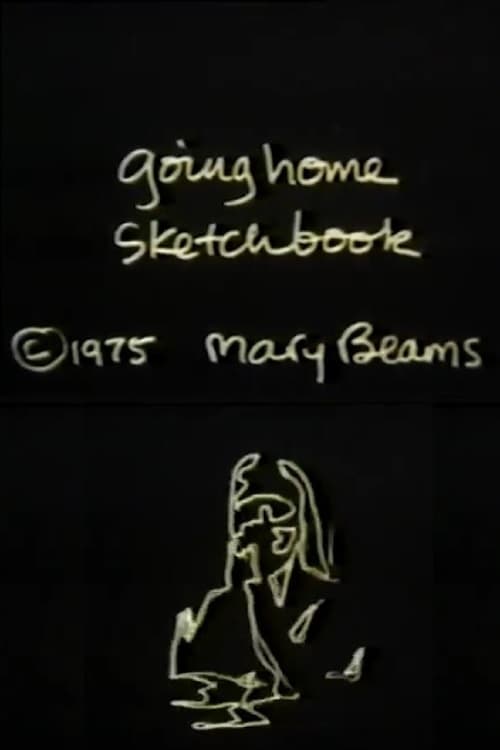 going home
Sketchbook
©1975 Mary Beams